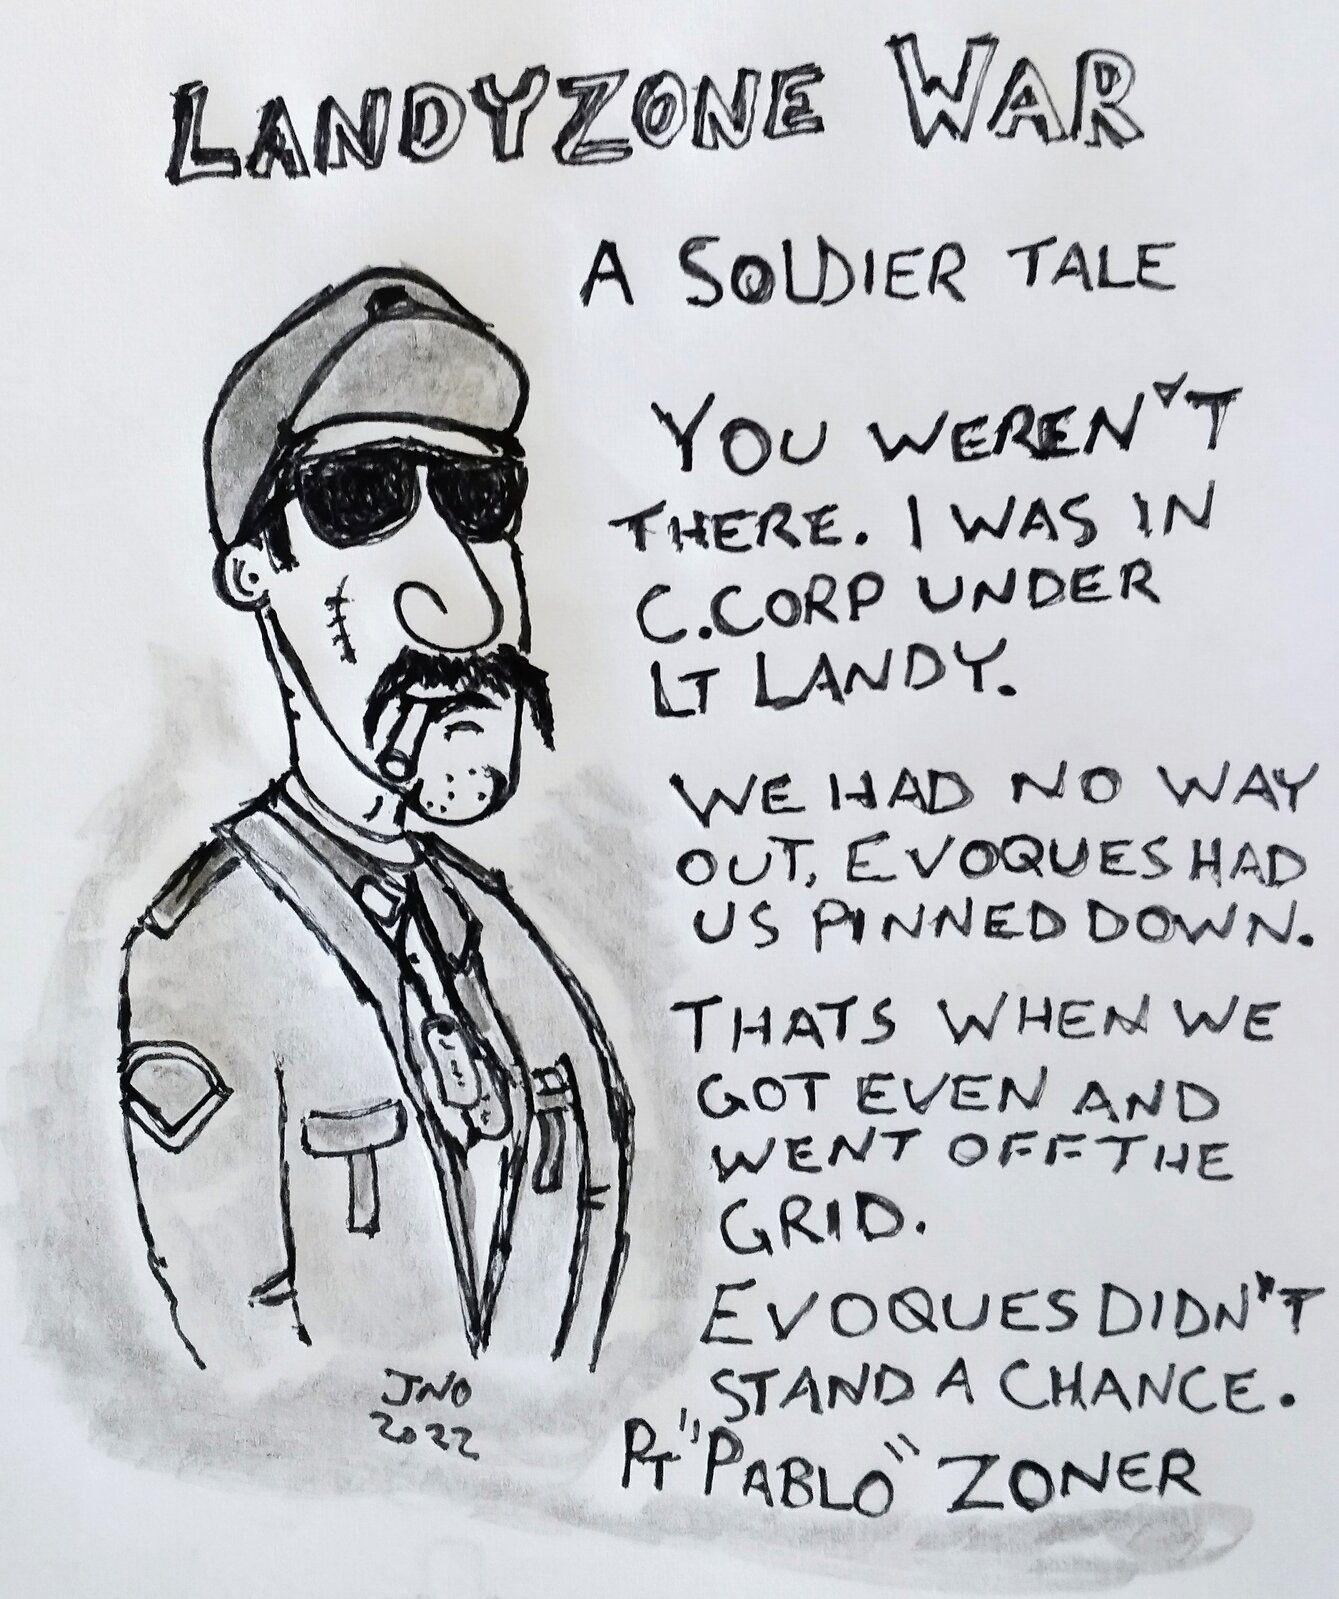 LANDYZONE WAR
A SOLDIER TALE
YOU WEREN'T
THERE. I WAS IN
C.CORP UNDER
LT LANDY.
WE HAD NO WAY
OUT, EVOQUES HAD
US PINNED DOWN.
THATS WHEN WE
GOT EVEN AND
WENT OFF THE
GRID.
EVOQUES DIDN'T
STAND A CHANCE.
PT "PABLO" ZONER
JNO
2022